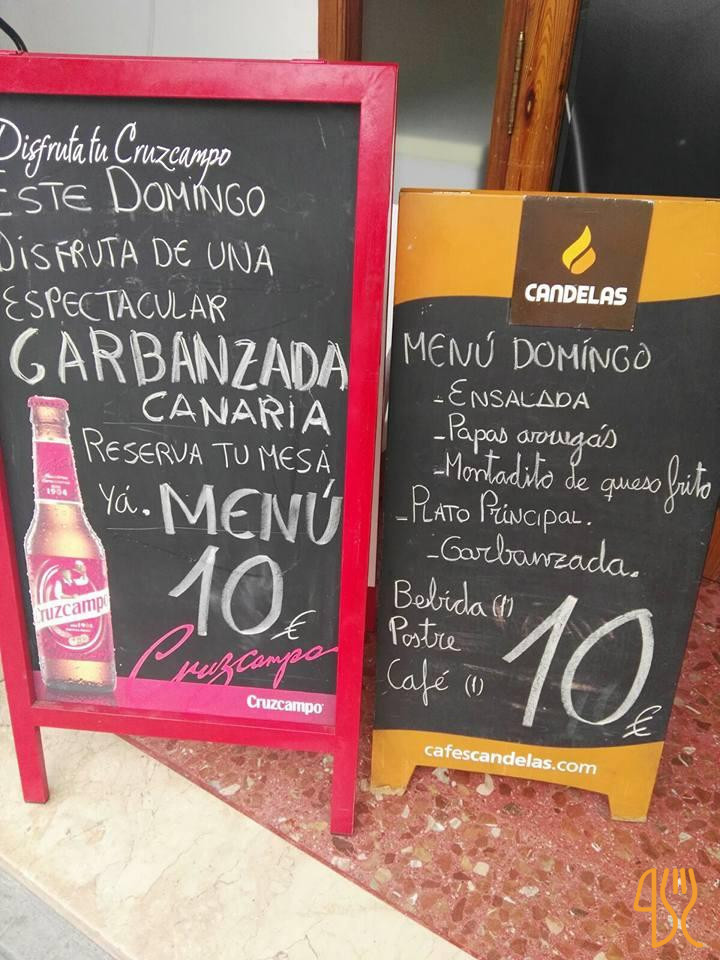 Disfruta tu Cruzcampo
ESTE DOMINGO
DISFRUTA DE UNA
ESPECTACULAR
GARBANZADA
CANARIA
RESERVA TU MESA
YÁ. MENÚ
10 €
1904
Cruzcampo
Cruzcampo
Cruzcampo
CANDELAS
MENÚ DOMÍNGO
- ENSALADA
- Papas arrugás
- Montadito de queso frito
- PLATO PRINCIPAL.
- Garbanzada.
Bebida (1)
Postre
Café (1)
10 €
cafescandelas.com